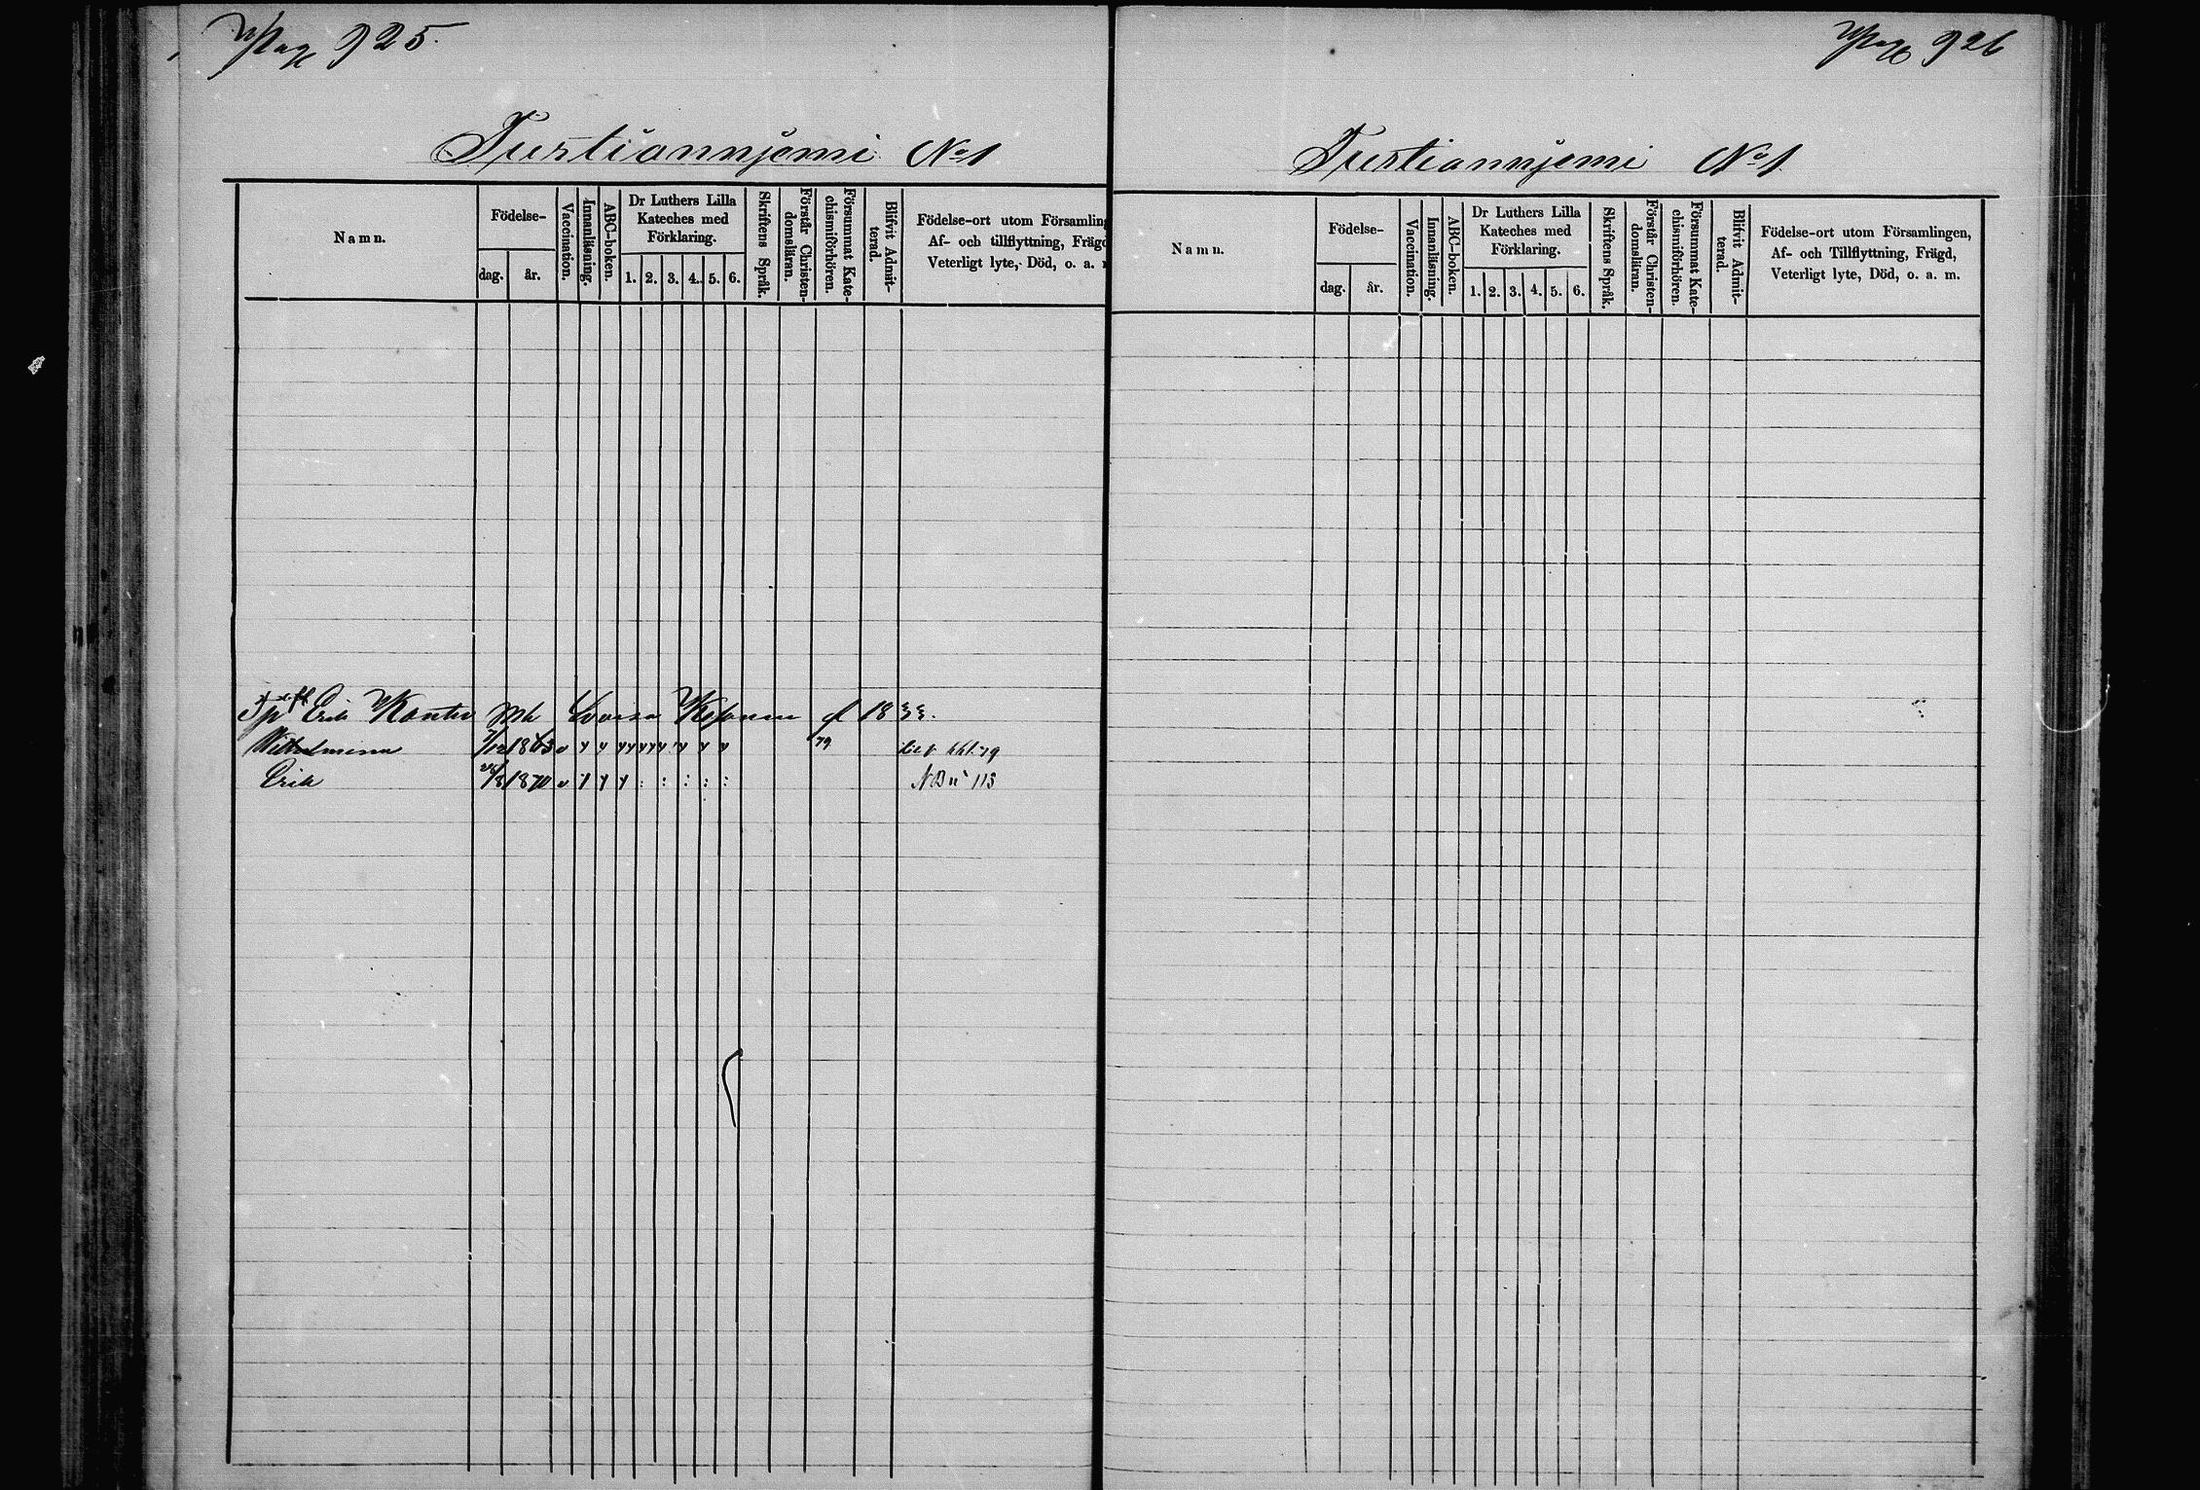 Pag 925.
Turtiannjemi No 1
Namn.
Födelse-
dag.
år.
Vaccination.
Innanläsning.
ABC-boken.
Dr Luthers Lilla
Kateches med
Förklaring.
1. 2. 3. 4. 5. 6.
Skriftens Språk.
Förstår Christen-
domsläran.
Försummat Kate-
chismiförhören.
Blifvit Admit-
terad.
Födelse-ort utom Församling
Af- och tillflyttning, Frägd
Veterligt lyte, Död, o. a.
Erik
18
Wilhelmina 1863 v 79
Erik 1870 v 113
Pag 926
Turtiannjemi No 1
Namn.
Födelse-
dag.
år.
Vaccination.
Innanläsning.
ABC-boken.
Dr Luthers Lilla
Kateches med
Förklaring.
1. 2. 3. 4. 5. 6.
Skriftens Språk.
Förstår Christen-
domsläran.
Försummat Kate-
chismiförhören.
Blifvit Admit-
terad.
Födelse-ort utom Församlingen,
Af- och Tillflyttning, Frägd,
Veterligt lyte, Död, o. a. m.